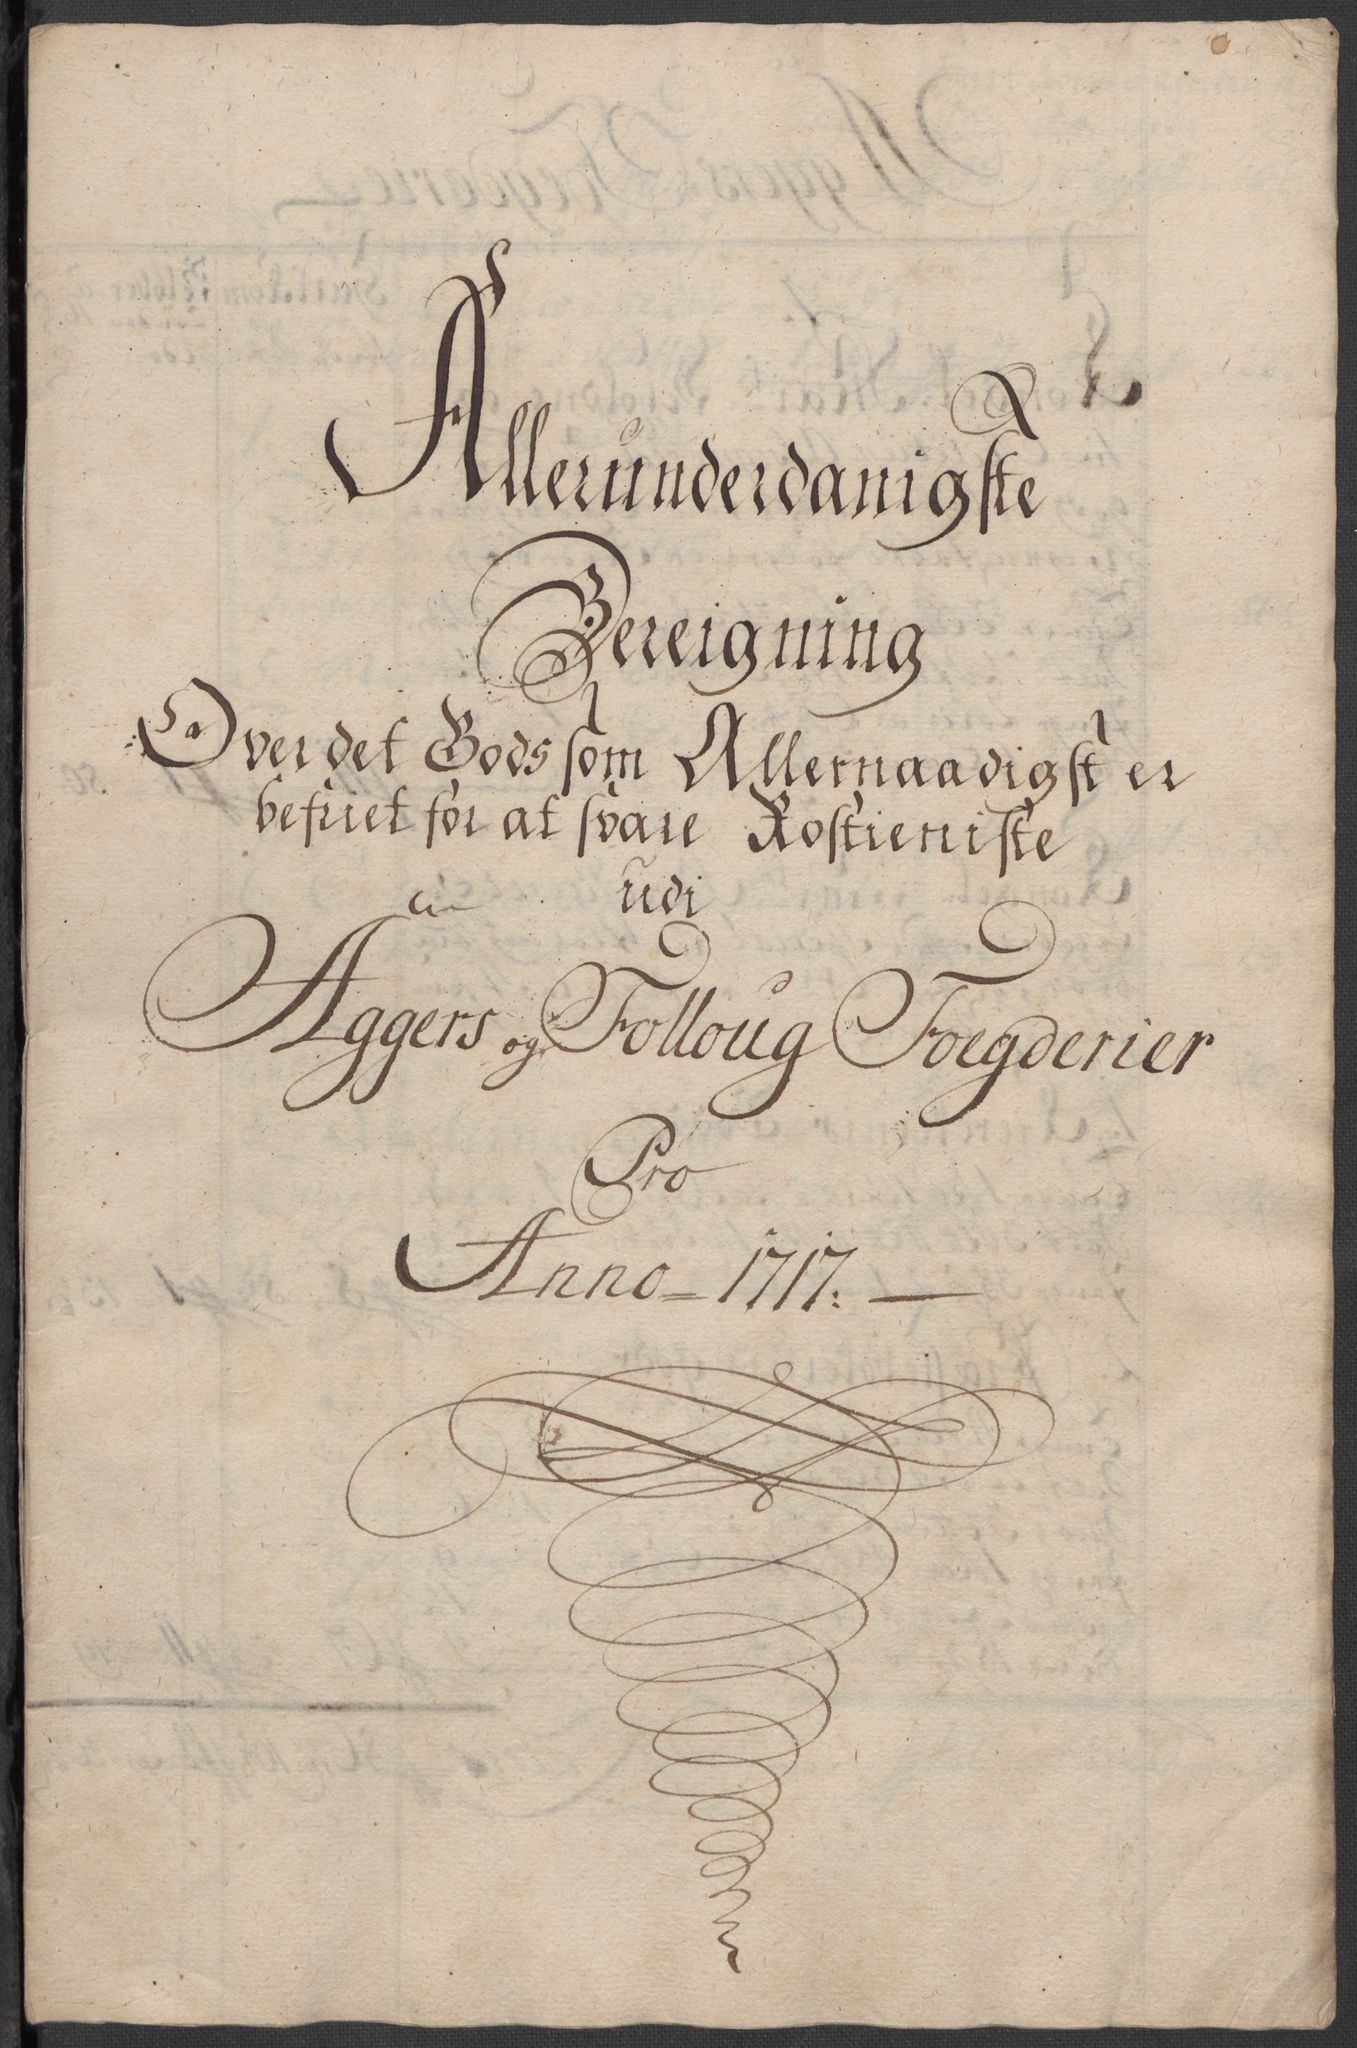 Allerunderdanigste
Bereigning
Over det Gods som Allernaadigst er
befriet for at svare Rostieniste
udi
Aggers og Folloug Foegderier
Pro
Anno = 1717: